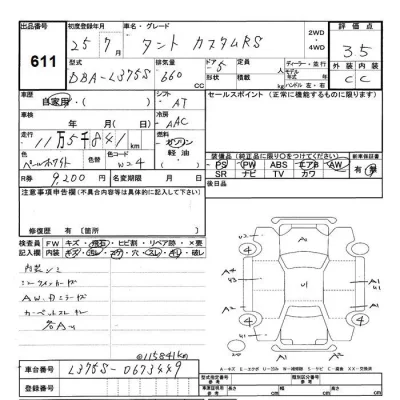 出品番号
611
初度登録年月
25年7月
車名・グレード
タント カスタムRS
2WD
4WD
評価点
3.5
型式
DBA-L375S
排気量
660
CC
ドア
5
形状
定員
人
積載
kg
ディーラー・並行
モデル年式
年
ハンドル 左・右
外装
内装
C
C
車歴
自家用・( )
シフト
AT
セールスポイント (正常に機能するもののみに限ります)
車検
年 月( 日)
冷房
AAC
走行
11万5千841km
燃料
ガソリン
軽油
色
パールホワイト
色替
色コード
W24
( )
装備品(純正品に限り○をつけてください)
新車保証書
PS PW ABS エアB AW
SR ナビ TV カワ
有
R券
9200円
名変期限
月 日
後日品
注意事項申告欄(不具合内容等は具体的に記入して下さい)
修復歴 有〔箇所 〕
検査員記入欄
FW キズ・飛石・ヒビ割・リペア跡・×要
内装 キズ・汚レ・コゲ・穴・スレ・キレ・破レ
内装シミ
AW、カミキズ
各AU
@115841km
4
A1
U1
A2
A-キズ E-エクボ U-凹み W-補修跡 S-サビ C-腐食 XX-交換済
車台番号
L375S-0673449
登録番号
型式指定番号
参考
類別区分番号
参考
長さ
cm
幅
cm
高さ
cm